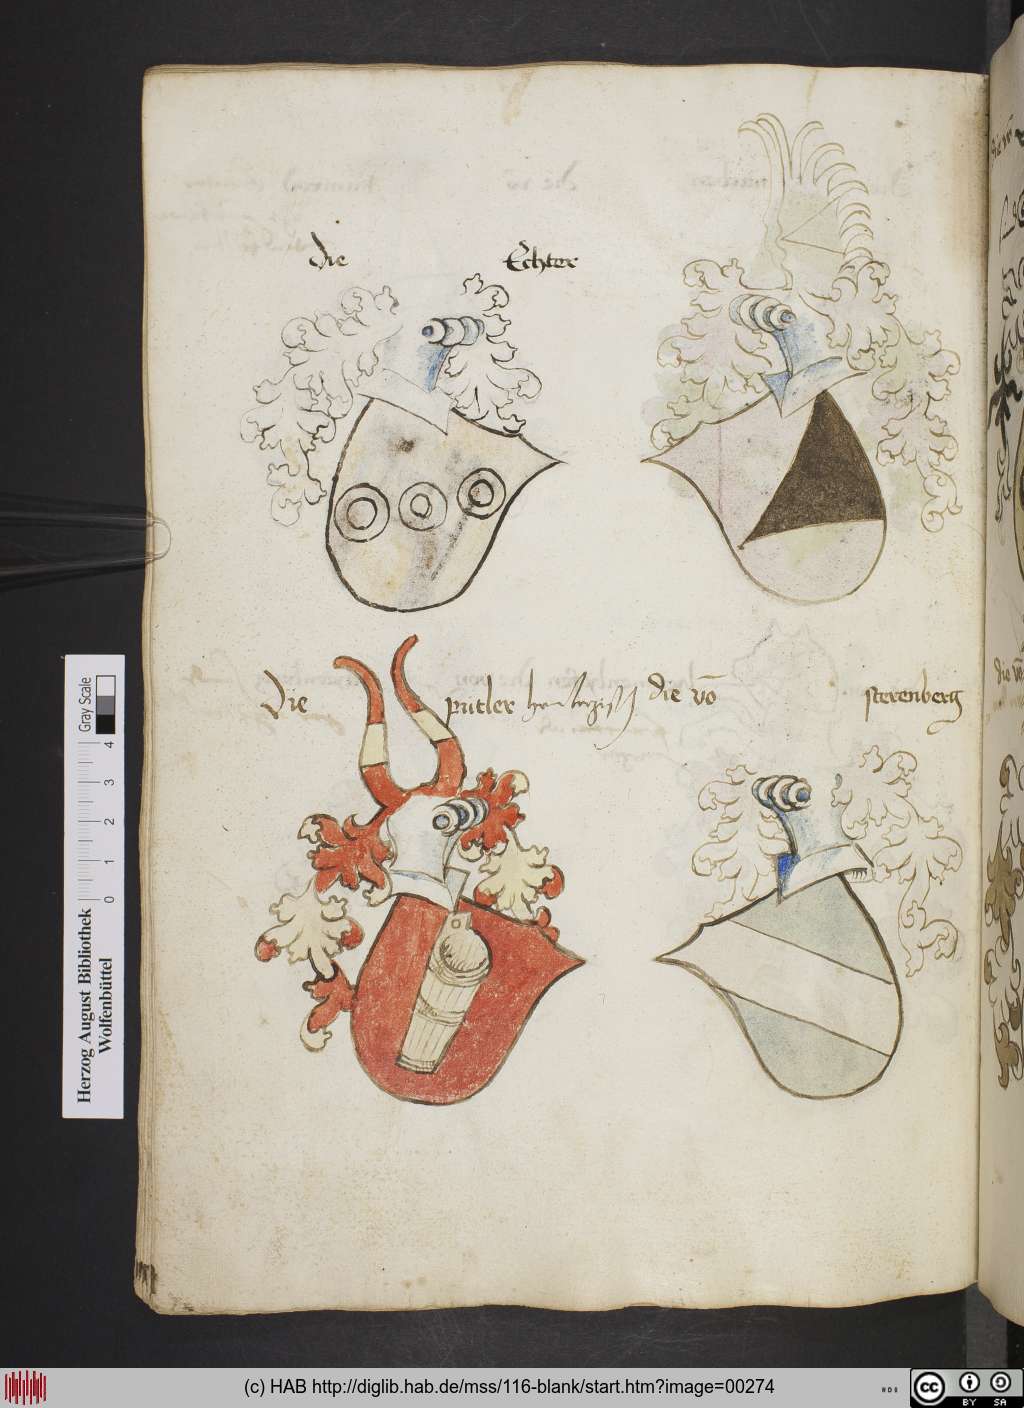 die Echter
die putler
die vō sterenberg
Herzog August Bibliothek
Wolfenbüttel
0 1 2 3 4
Gray Scale
(c) HAB http://diglib.hab.de/mss/116-blank/start.htm?image=00274
cc BY SA